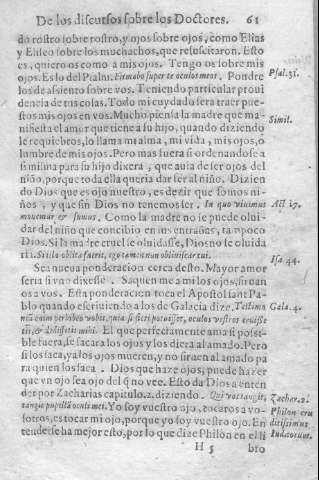 De los discursos sobre los Doctores. 61
do rostro sobre rostro, y ojos sobre ojos, como Elias
y Eliseo sobre los muchachos, que resuscitaron. Esto
es, quiero os como a mis ojos. Tengo os sobre mis
ojos. Es lo del Psalm. Firmabo super te oculos meos. Pondre
los de assiento sobre vos. Teniendo particular proui
dencia de tus cosas. Todo mi cuydado sera traer pue-
stos mis ojos en vos. Mucho piensa la madre que ma-
nifiesta el amor que tiene a su hijo, quando diziendo
le requiebros, lo llama mi alma, mi vida, mis ojos, ò
lumbre de mis ojos. Pero mas fuera si ordenandose a
si misma para su hijo dixera, que auia de ser ojos del
niño, porque toda ella queria dar ser al niño. Dizien
do Dios que es ojo nuestro, es dezir que somos ni-
ños, y que sin Dios no tenemos ser. In quo viuimus
mouemur & sumus. Como la madre no se puede olui-
dar del niño que concibio en sus entrañas, tampoco
Dios. Si la madre cruel se oluidasse, Dios no se oluida
Si illa oblita fuerit, ego tamen non obliuiscar tui.
Sea nueua ponderacion cerca desto. Mayor amor
seria si vno dixesse. Saquen me a mi los ojos, siruan
os a vos. Esta ponderacion toca el Apostol sant Pa-
blo quando escriuiendo a los de Galacia dize, Testimo
nium enim perhibeo vobis, quia si fieri potuisset, oculos vestros eruisse
tis, & dedissetis mihi. El que perfectamente ama si pos-
ble fuera, se sacara los ojos y los diera al amado. Pero
si los saca, ya los ojos mueren, y no siruen al amado pa
ra quien los saca. Dios que haze ojos, puede hazer
que vn ojo sea ojo del q̃ no vee. Esto da Dios a enten
der por Zacharias capitulo. 2. diziendo. Qui vos tangit,
tangit pupillã oculi mei. Yo soy vuestro ojo, tocaros a vo-
sotros, es tocar mi ojo, porque yo soy vuestro ojo. En
tenderse ha mejor esto, por lo que dize Philòn en el li
H 5 bro
Psal. 31.
Simil.
Act 17.
Isa. 44.
Gala. 4.
Zachar. 2.
Philon eru
ditissimus
Iudaeorum.